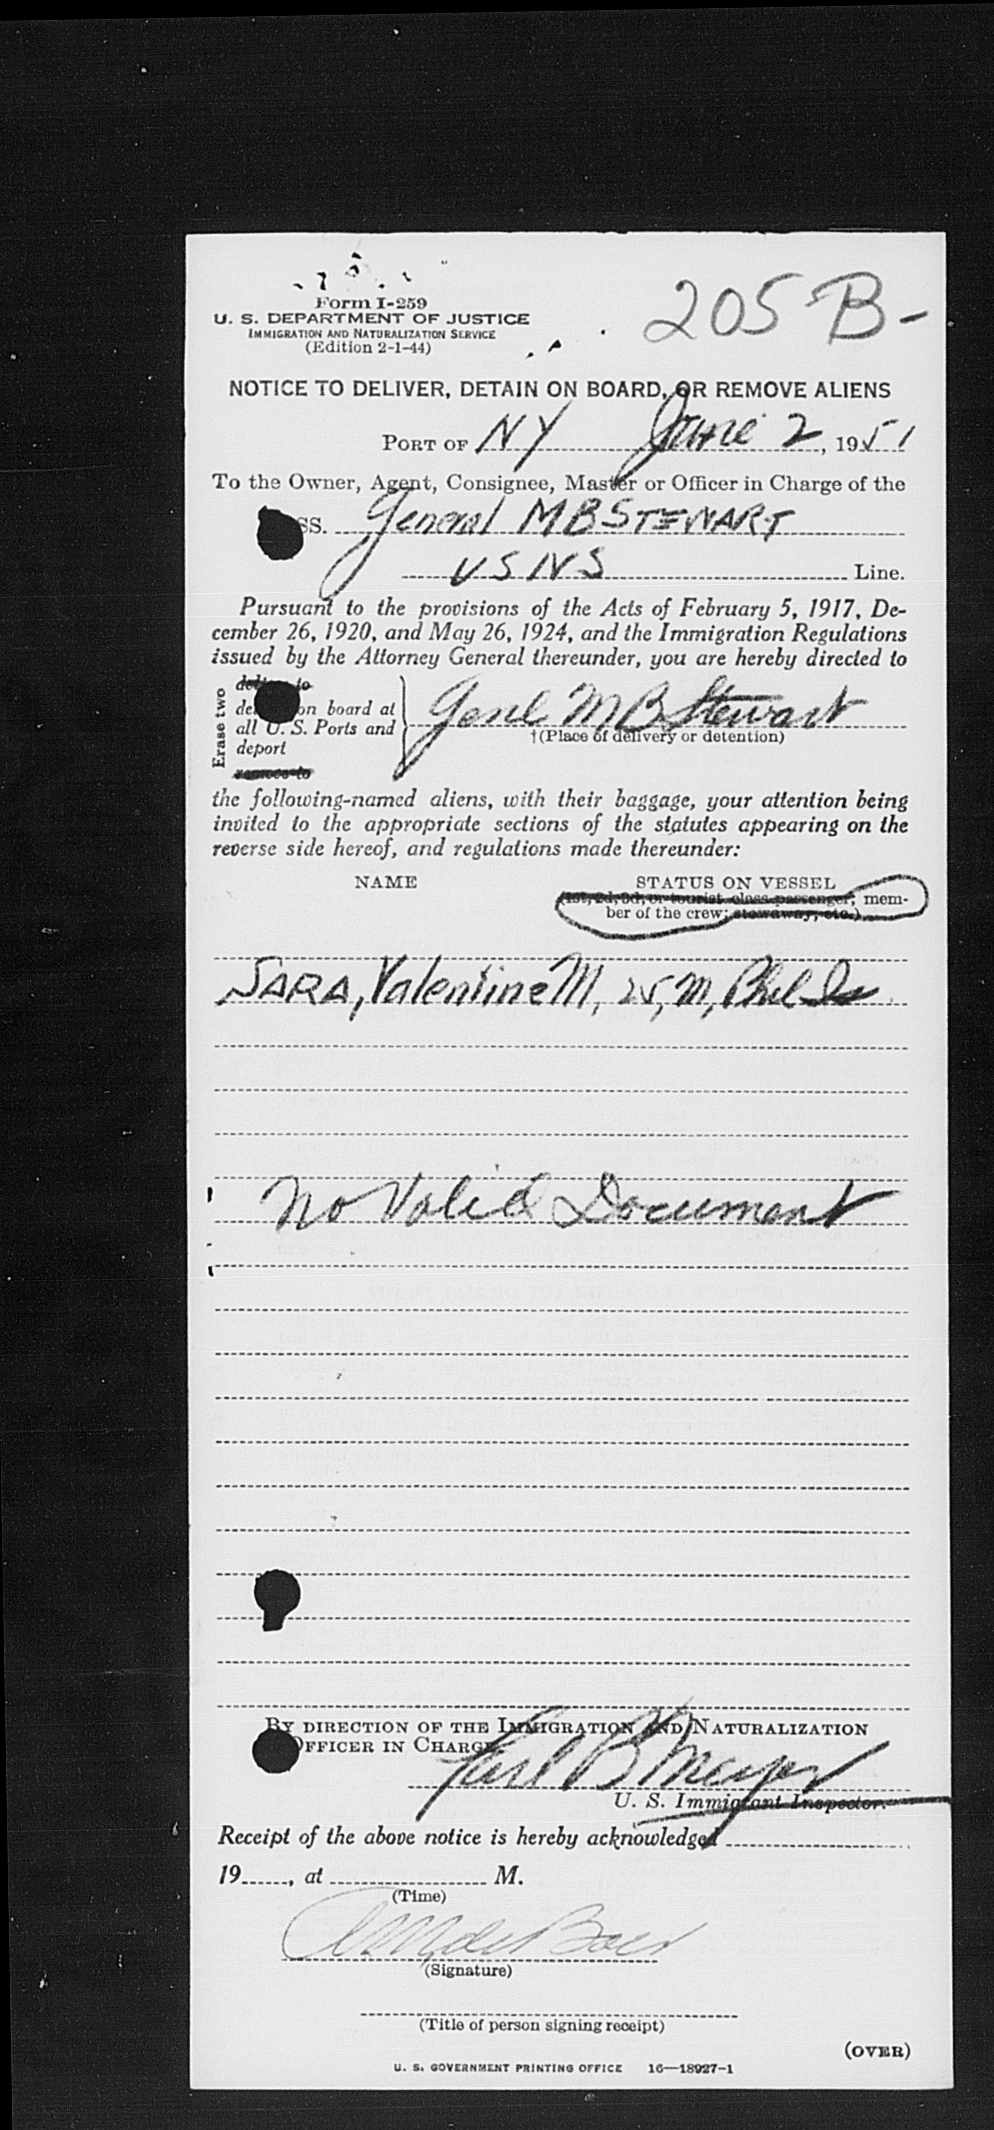 Form I-259
U. S. DEPARTMENT OF JUSTICE
IMMIGRATION AND NATURALIZATION SERVICE
(Edition 2-1-44)
205 B-
NOTICE TO DELIVER, DETAIN ON BOARD, OR REMOVE ALIENS
PORT OF NY June 2, 1951
To the Owner, Agent, Consignee, Master or Officer in Charge of the
SS. General M B STEWART
USNS Line.
Pursuant to the provisions of the Acts of February 5, 1917, De-
cember 26, 1920, and May 26, 1924, and the Immigration Regulations
issued by the Attorney General thereunder, you are hereby directed to
Erase two
deliver to
de on board at
all U. S. Ports and
deport
remove to
Genl M B Stewart
†(Place of delivery or detention)
the following-named aliens, with their baggage, your attention being
invited to the appropriate sections of the statutes appearing on the
reverse side hereof, and regulations made thereunder:
NAME STATUS ON VESSEL
(1st, 2d, 3d, or tourist class passenger; mem-
ber of the crew; stowaway, etc.)
SARA, Valentine M, 25, M, Phil Is
No Valid Document
BY DIRECTION OF THE IMMIGRATION AND NATURALIZATION
OFFICER IN CHARGE
Carl B Meyer
U. S. Immigrant Inspector.
Receipt of the above notice is hereby acknowledged
19......, at M.
(Time)
(Signature)
(Title of person signing receipt)
(OVER)
U. S. GOVERNMENT PRINTING OFFICE 16—18927-1